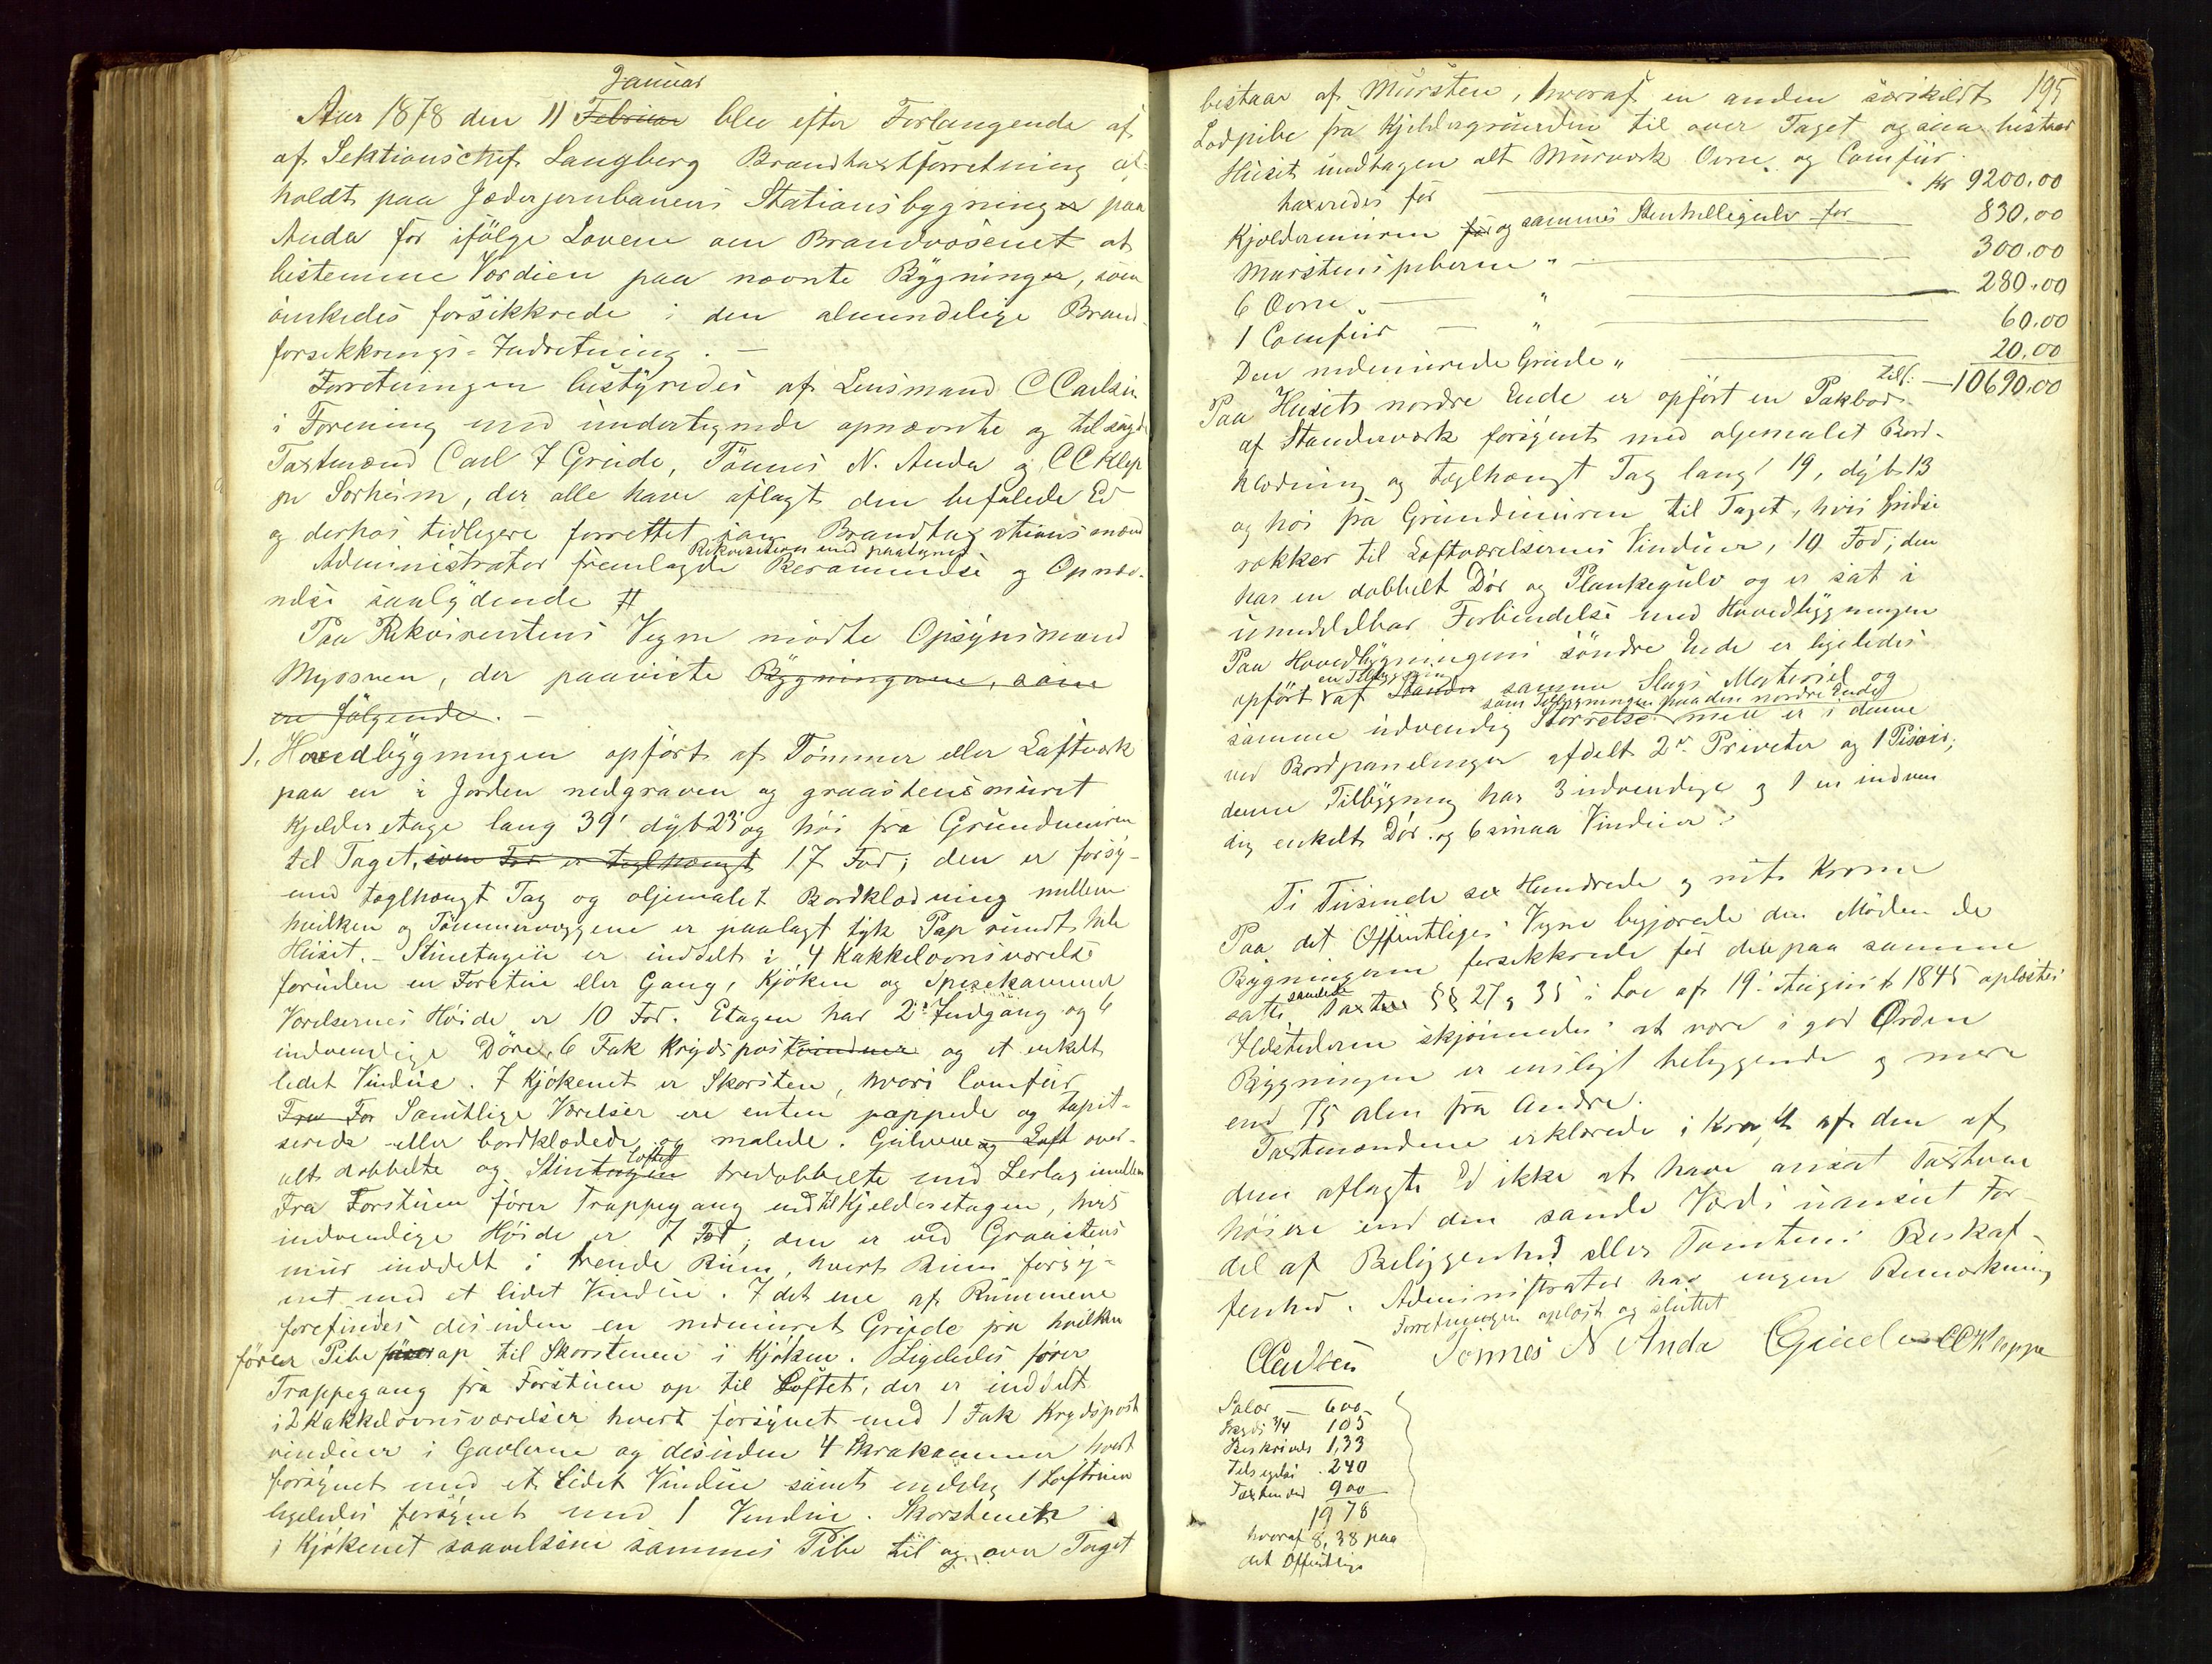 Januar
Aar 1878 den 11 Februar blev efter Forlangende af
af Sektionschef Langberg Brandtaxtforretning af-
holdt paa Jæderjernbanens Stationsbygninger paa
Anda for ifølge Lovene om Brandvæsenet at
bestemme Værdien paa nævnte Bygninger, som
ønskedes forsikkrede i den almindelige Brand-
forsikkrings-Indretning. —
Forretningen bestyredes af Lensmand C Carlsen
i Forening med undertegnede opnævnte og tilsagde
Taxtmænd Carl T Grude, Tønnes N. Anda og CC Klep
pe Sørheim, der alle have aflagt den befalede Ed
og derhos tidligere forrettet som Brandtaxtionsmænd
Rekvisition med paategnet
Administrator fremlagde Berammelse og Opnæv-
nelse saalydende #
Paa Rekvirentens Vegne mødte Opsynsmand
Myosven, der paaviste Bygningerne, som
ere følgende. —
1. Hovedbygningen opført af Tømmer eller Laftværk
paa en i Jorden nedgraven og graastensmuret
Kjelderetage lang 39' dyb 23' og høi fra Grundmuren
til Taget, som For er teglhængt 17 Fod; den er forsy-
med teglhængt Tag og oljemalet Bordklædning mellem
hvilken og Tømmervæggene er paalagt tyk Pap rundt hele
Huset. – Stuetagen er inddelt i 4 Kakkelovnsværelse
foruden en Forstue eller Gang, Kjøken og Spisekammer
Værelsernes Høide er 10 Fod. Etagen har 2de Indgang og 6
indvendige Døre, 6 Fak Krydspostvinduer og et enkelt
lidet Vindue. I Kjøkenet er Skorsten, hvori Comfur
Fra For Samtlige Værelser ere enten pappede og tapit-
serede eller bordklædede og malede. Gulvene og Loft over-
loftet
alt dobbelte og Stuetagen tredobbelte med Lerlag imellem
Fra Forstuen fører Trappegang ned til Kjelderetagen, hvis
indvendige Høide er 7 Fod; den er ved Graastens
mur inddelt i trende Rum, hvert Rum forsy-
net med et lidet Vindue. I det ene af Rummene
forefindes desuden en nedmuret Grude fra hvilken
fører Pibe fører op til Skorstenen i Kjøken. Ligeledes fører
Trappegang fra Forstuen op til Loftet, der er inddelt
i 2 Kakkelovnsværelser hvert forsynet med 1 Fak Krydspost
vinduer i Gavlerne og desuden 4 Skraakammer hvert
forsynet med et lidet Vindue samt endelig 1 Loftrum
ligeledes forsynet med 1 Vindue. Skorstenen
i Kjøkenet saavelsom sammes Pibe til og over Taget
195
bestaar af Mursten, hvoraf en anden særskildt
Lodpibe fra Kjeldergrunden til over Taget ogsaa bestaar
Huset undtagen alt Murværk Ovne og Comfur
taxeredes for — Kr 9200.00
Kjeldermuren for og sammes Stenhellegulv for — 830.00
Murstenspiberne " — 300.00
6 Ovne — " — 280.00
1 Comfur — " — 60.00
Den nedmurede Grude " — 20.00
tils. — 10690.00
Paa Husets nordre Ende er opført en Pakbod
af Standerværk forsynet med oljemalet Bord-
klædning og teglhængt Tag lang 19, dyb 13
og høi fra Grundmuren til Taget, hvis
rækker til Loftværelsernes Vinduer, 10 Fod; den
har en dobbelt Dør og Plankegulv og er sat i
umiddelbar Forbindelse med Hovedbygningen
Paa Hovedbygningens søndre Ende er ligeledes
en Tilbygning
opført af Stander samme Slags Materiel og
som Tilbygningen paa den nordre Ende
samme udvendig Størrelse men er i denne
ved Bordpanelinger afdelt 2de Priveter og 1 Pissoir;
denne Tilbygning har 3 udvendige og 1 en indven
dig enkelt Dør og 6 smaa Vinduer.
Ti Tusinde sex Hundrede og niti Kroner
Paa det Offentliges Vegne begjærede den Mødende
Bygningerne forsikkrede for den paa samme
samlede
satte Taxter §§ 27 og 35 i Lov af 19. August 1845 oplæstes
Ildstederne skjønnedes at være i god Orden
Bygningen er ensligt beliggende og mere
end 75 Alen fra Andre.
Taxtmændene erklærede i Kraft af den af
dem aflagte Ed ikke at have ansat Taxterne
høiere end den sande Værdi uanset For-
del af Beliggenhed eller Tomtens Beskaf-
fenhed. Administrator har ingen Bemærkning
Forretningen oplæst og sluttet
CCarlsen Tønnes N Anda CGrude CCKleppe
Salær — 600
Skyds 3/4 105
Beskrivels 1,33
Tilsigelse 240
Taxtmænd 900
1978
hvoraf 8,38 paa
det Offentlige